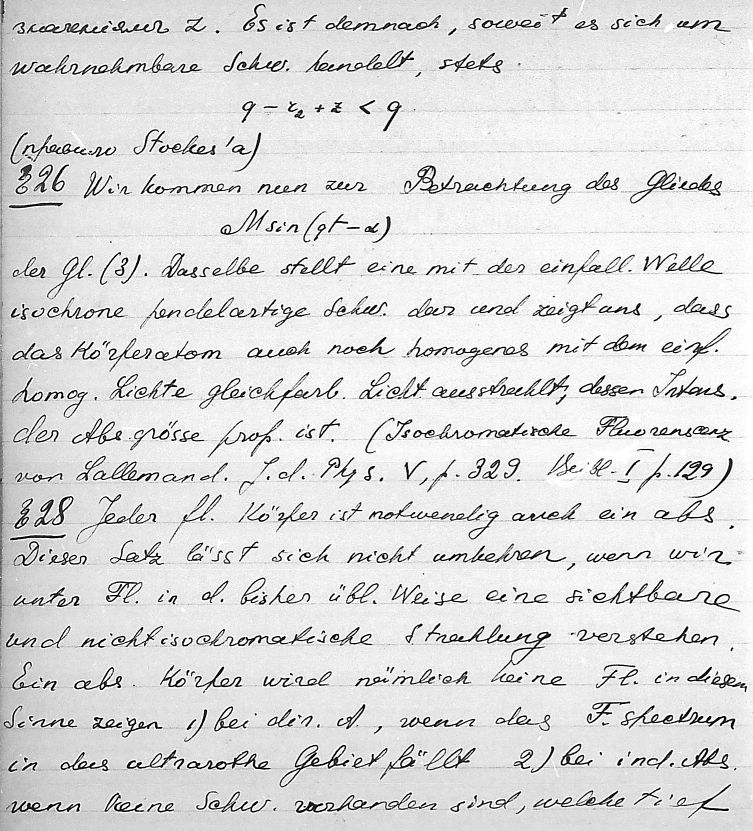 значениямъ z. Es ist demnach, soweit es sich um
wahrnehmbare Schw. handelt, stets
q − r₂ + z < q
(правило Stockes'a)
§26 Wir kommen nun zur Betrachtung des Gliedes
M sin (qt − α)
der Gl. (3). Dasselbe stellt eine mit der einfall. Welle
isochrone pendelartige Schw. dar und zeigt uns, dass
das Körperatom auch noch homogenes mit dem einf.
homog. Lichte gleichfarb. Licht ausstrahlt, dessen Intens.
der Abs. grösse prop. ist. (Isochromatische Fluorenscenz
von Lallemand. J. d. Phys. V, p. 329. Beibl. I p. 129)
§28 Jeder fl. Körper ist notwendig auch ein abs.
Dieser Satz lässt sich nicht umkehren, wenn wir
unter Fl. in d. bisher übl. Weise eine sichtbare
und nicht isochromatische Strahlung verstehen.
Ein abs. Körper wird nämlich keine Fl. in diesem
Sinne zeigen 1) bei dir. A., wenn das F. spectrum
in das ultrarothe Gebiet fällt 2) bei ind. Abs.
wenn keine Schw. vorhanden sind, welche tief